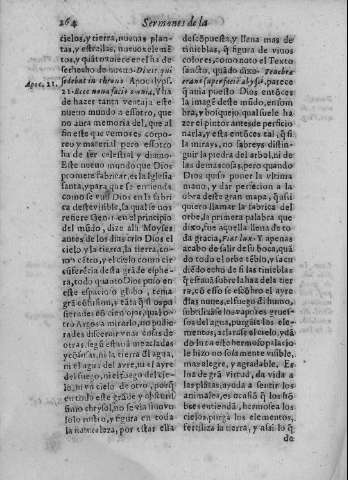 264 Sermones de la
cielos, y tierra, nueuas plan-
tas, y estrellas, nueuos eleme̅-
tos, y quāto vuiere en el ha de
ser hecho de nueuo. Dixit qui
sedebat in throno Apocalyps.
Apoc. 21.
21. Ecce noua facio omnia, Y ha
de hazer tanta ventaja este
nueuo mundo al otro, que no
aura memoria del, que al
fin este que vemos es corpo-
reo y material pero essotro
ha de ser celestial y diuino
Este nueuo mundo que Dios
promete fabricar, es la Iglesia
santa, y para que se entienda
como se vuo Dios en la fabri
ca deste visible, la qual se nos
refiere Gen. en el principio
del mūdo, dize alli Moyses
antes de los dias crio Dios el
cielo y la tierra, la tierra, co-
mo cētro, y el cielo como cir
cūferēcia desta grāde esphe-
ra, todo quanto Dios puso en
este espacio
grā cōfusion, y
sieradas
tro Argos a mirarlo, no pudie
radas discernir vnas cosas de
otras, segū estauā mezcladas
y cōfusas, ni la tierra del agua,
ni el agua del ayre, ni el ayre
del fuego, ni el fuego del cie-
lo, ni vn cielo de otro, porq̄
entiendo este grāde y obscuris
simo chryso, no se via sino vn
solo rostro, y figura en toda
la naturaleza, por estar ella
descōpuesta, y llena mas de
tinieblas, q̄ figura de viuos
colores, como noto el Texto
sancto, quādo dixo Tenebræ
erant super faciē abyssi, parece
que estaua Dios entōces
la imagē deste mūdo, en som-
bra, y bosquejo, qual suele ha
zer el pintor antes de perficio
narla, y esta entōces tal, q̄ si
la mirays, no sabreys distin-
guir la piedra del arbol, ni de
las damascos, pero quando
Dios quiso poner la vltima
mano, y dar perficion a la
obra deste gran mapa, q̄ assi
quiero llamar la fabrica del
orbe, la primera palabra que
dixo, fue aquella llena de to
da gracia, Fiat lux. Y apenas
acabo de salir de su boca, quā
do todo el orbe tēblo, y sacu
diēdo echo de si las tinieblas
q̄ estauā sobre la haz dela tier
ra, cō esso se escōbro el ayre
dias nunes, el fuego dl humo,
subtilizāse los vapores grues-
sos del agua, purgāse los ele-
mētos, aclarase el cielo, y dā-
do luz a este hermoso palacio
le hizo no solamente visible,
mas alegre, y agradable. Es
luz de grā virtud, da vida a
las plātas, ayuda a sentir los
animales, es ocasiō q̄ los hō
bres entiendā, hermosea los
cielos, purga los elementos,
fertiliza la tierra, y assi lo q̄
de